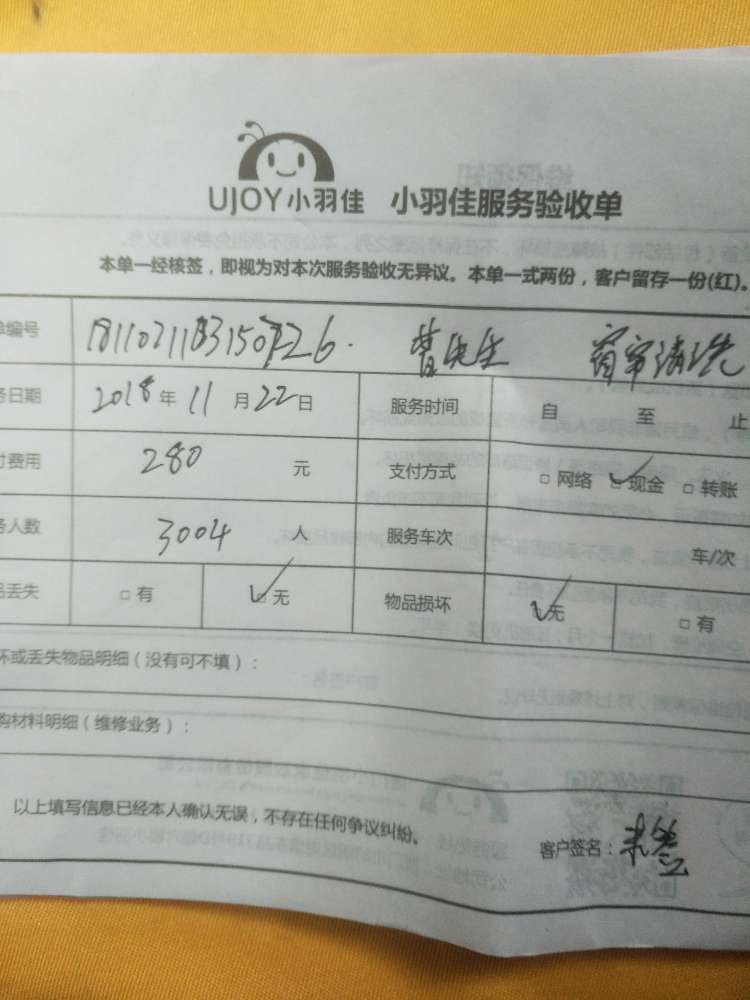 UJOY小羽佳 小羽佳服务验收单
本单一经核签，即视为对本次服务验收无异议。本单一式两份，客户留存一份(红)。
单编号 曾先生 窗帘清洗
务日期 2018年11月22日 服务时间 自 至 止
付费用 280 元 支付方式 □网络 ☑现金 □转账
务人数 3004 人 服务车次 车/次
品丢失 □有 ☑无 物品损坏 ☑无 □有
坏或丢失物品明细（没有可不填）：
购材料明细（维修业务）：
以上填写信息已经本人确认无误，不存在任何争议纠纷。
客户签名：未签